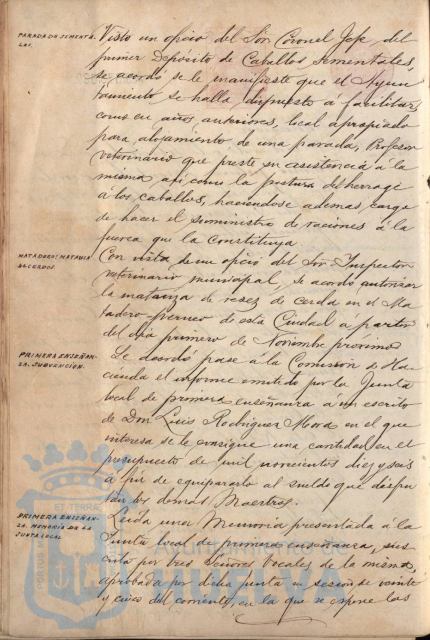 PARADA DE SEMENTA-
LES.
Visto un oficio del Sor. Coronel Jefe del
primer Depósito de Caballos Sementales,
se acordó se le manifieste que el Ayun
tamiento se halla dispuesto á facilitar,
como en años anteriores, local apropiado
para alojamiento de una parada, Profesor
veterinario que preste su asistencia á la
misma así como la postura del herraje
á los caballos, haciéndose ademas cargo
de hacer el suministro de raciones á la
fuerza que la constituya.
MATADERO: MATANZA
DE CERDOS.
Con vista de un oficio del Sor. Inspector
veterinario municipal, se acordó autorizar
la matanza de reses de cerda en el Ma
tadero publico de esta Ciudad á partir
del dia primero de Noviembre proximo
PRIMERA ENSEÑAN-
ZA. SUBVENCIÓN.
Se acordó pase á la Comision de Ha
cienda el informe emitido por la Junta
local de primera enseñanza á un escrito
de Don Luis Rodriguez Mora en el que
interesa se le consigne una cantidad en el
presupuesto de mil novecientos diez y seis
á fin de equipararlo al sueldo que disfru
tan los demas Maestros.
PRIMERA ENSEÑAN-
ZA. MEMORIA DE LA
JUNTA LOCAL
Leida una Memoria presentada á la
Junta local de primera enseñanza, sus
crita por tres Señores Vocales de la misma,
aprobada por dicha Junta en sesión de veinte
y cinco del corriente, en la que se expone las
Ayuntamiento de
HUELVA